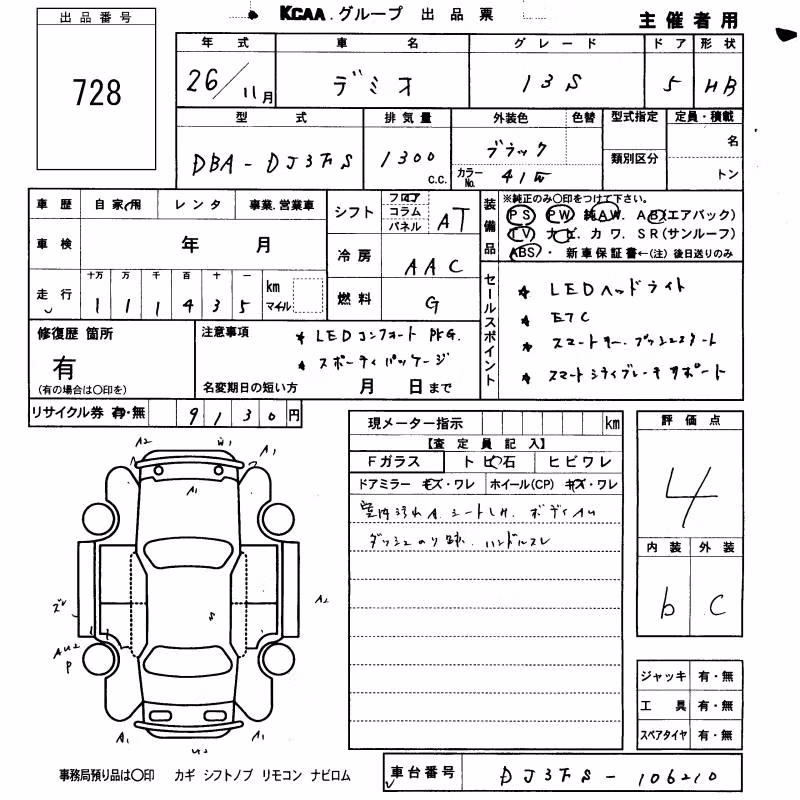 出品番号
728
KCAA.グループ 出品票
主催者用
年式 車名 グレード ドア 形状
26/11月 デミオ 13S 5 HB
型式 排気量 外装色 色替 型式指定 定員・積載
DBA-DJ3FS 1300 c.c. ブラック 名
カラーNo. 41W 類別区分 トン
車歴 自家用 レンタ 事業.営業車
車検 年 月
走行 十万 万 千 百 十 一
1 1 1 4 3 5 km マイル
シフト フロア コラム パネル AT
冷房 AAC
燃料 G
装備品
※純正のみ〇印をつけて下さい。
PS PW 純AW. AB(エアバック)
TV ナビ. カワ. SR(サンルーフ)
ABS・ 新車保証書←(注) 後日送りのみ
セールスポイント
★ LEDヘッドライト
★ ETC
★ スマートキー.プッシュスタート
★ スマートシティブレーキサポート
修復歴 箇所
有
(有の場合は〇印を)
注意事項
★ LEDコンフォート PKG.
★ スポーティパッケージ
名変期日の短い方 月 日まで
リサイクル券 有・無 9130円
現メーター指示 km
【査定員記入】
Fガラス トビ石 ヒビワレ
ドアミラー キズ・ワレ ホイール(CP) キズ・ワレ
室内汚れA.シートしみ.ボディAU
ダッシュのり跡.ハンドルスレ
評価点
4
内装 外装
b C
ジャッキ 有・無
工具 有・無
スペアタイヤ 有・無
A2 W1 A1
A1
A2
S
AU2
P
A1 U2 A1
事務局預り品は〇印 カギ シフトノブ リモコン ナビロム
車台番号 DJ3FS-106210